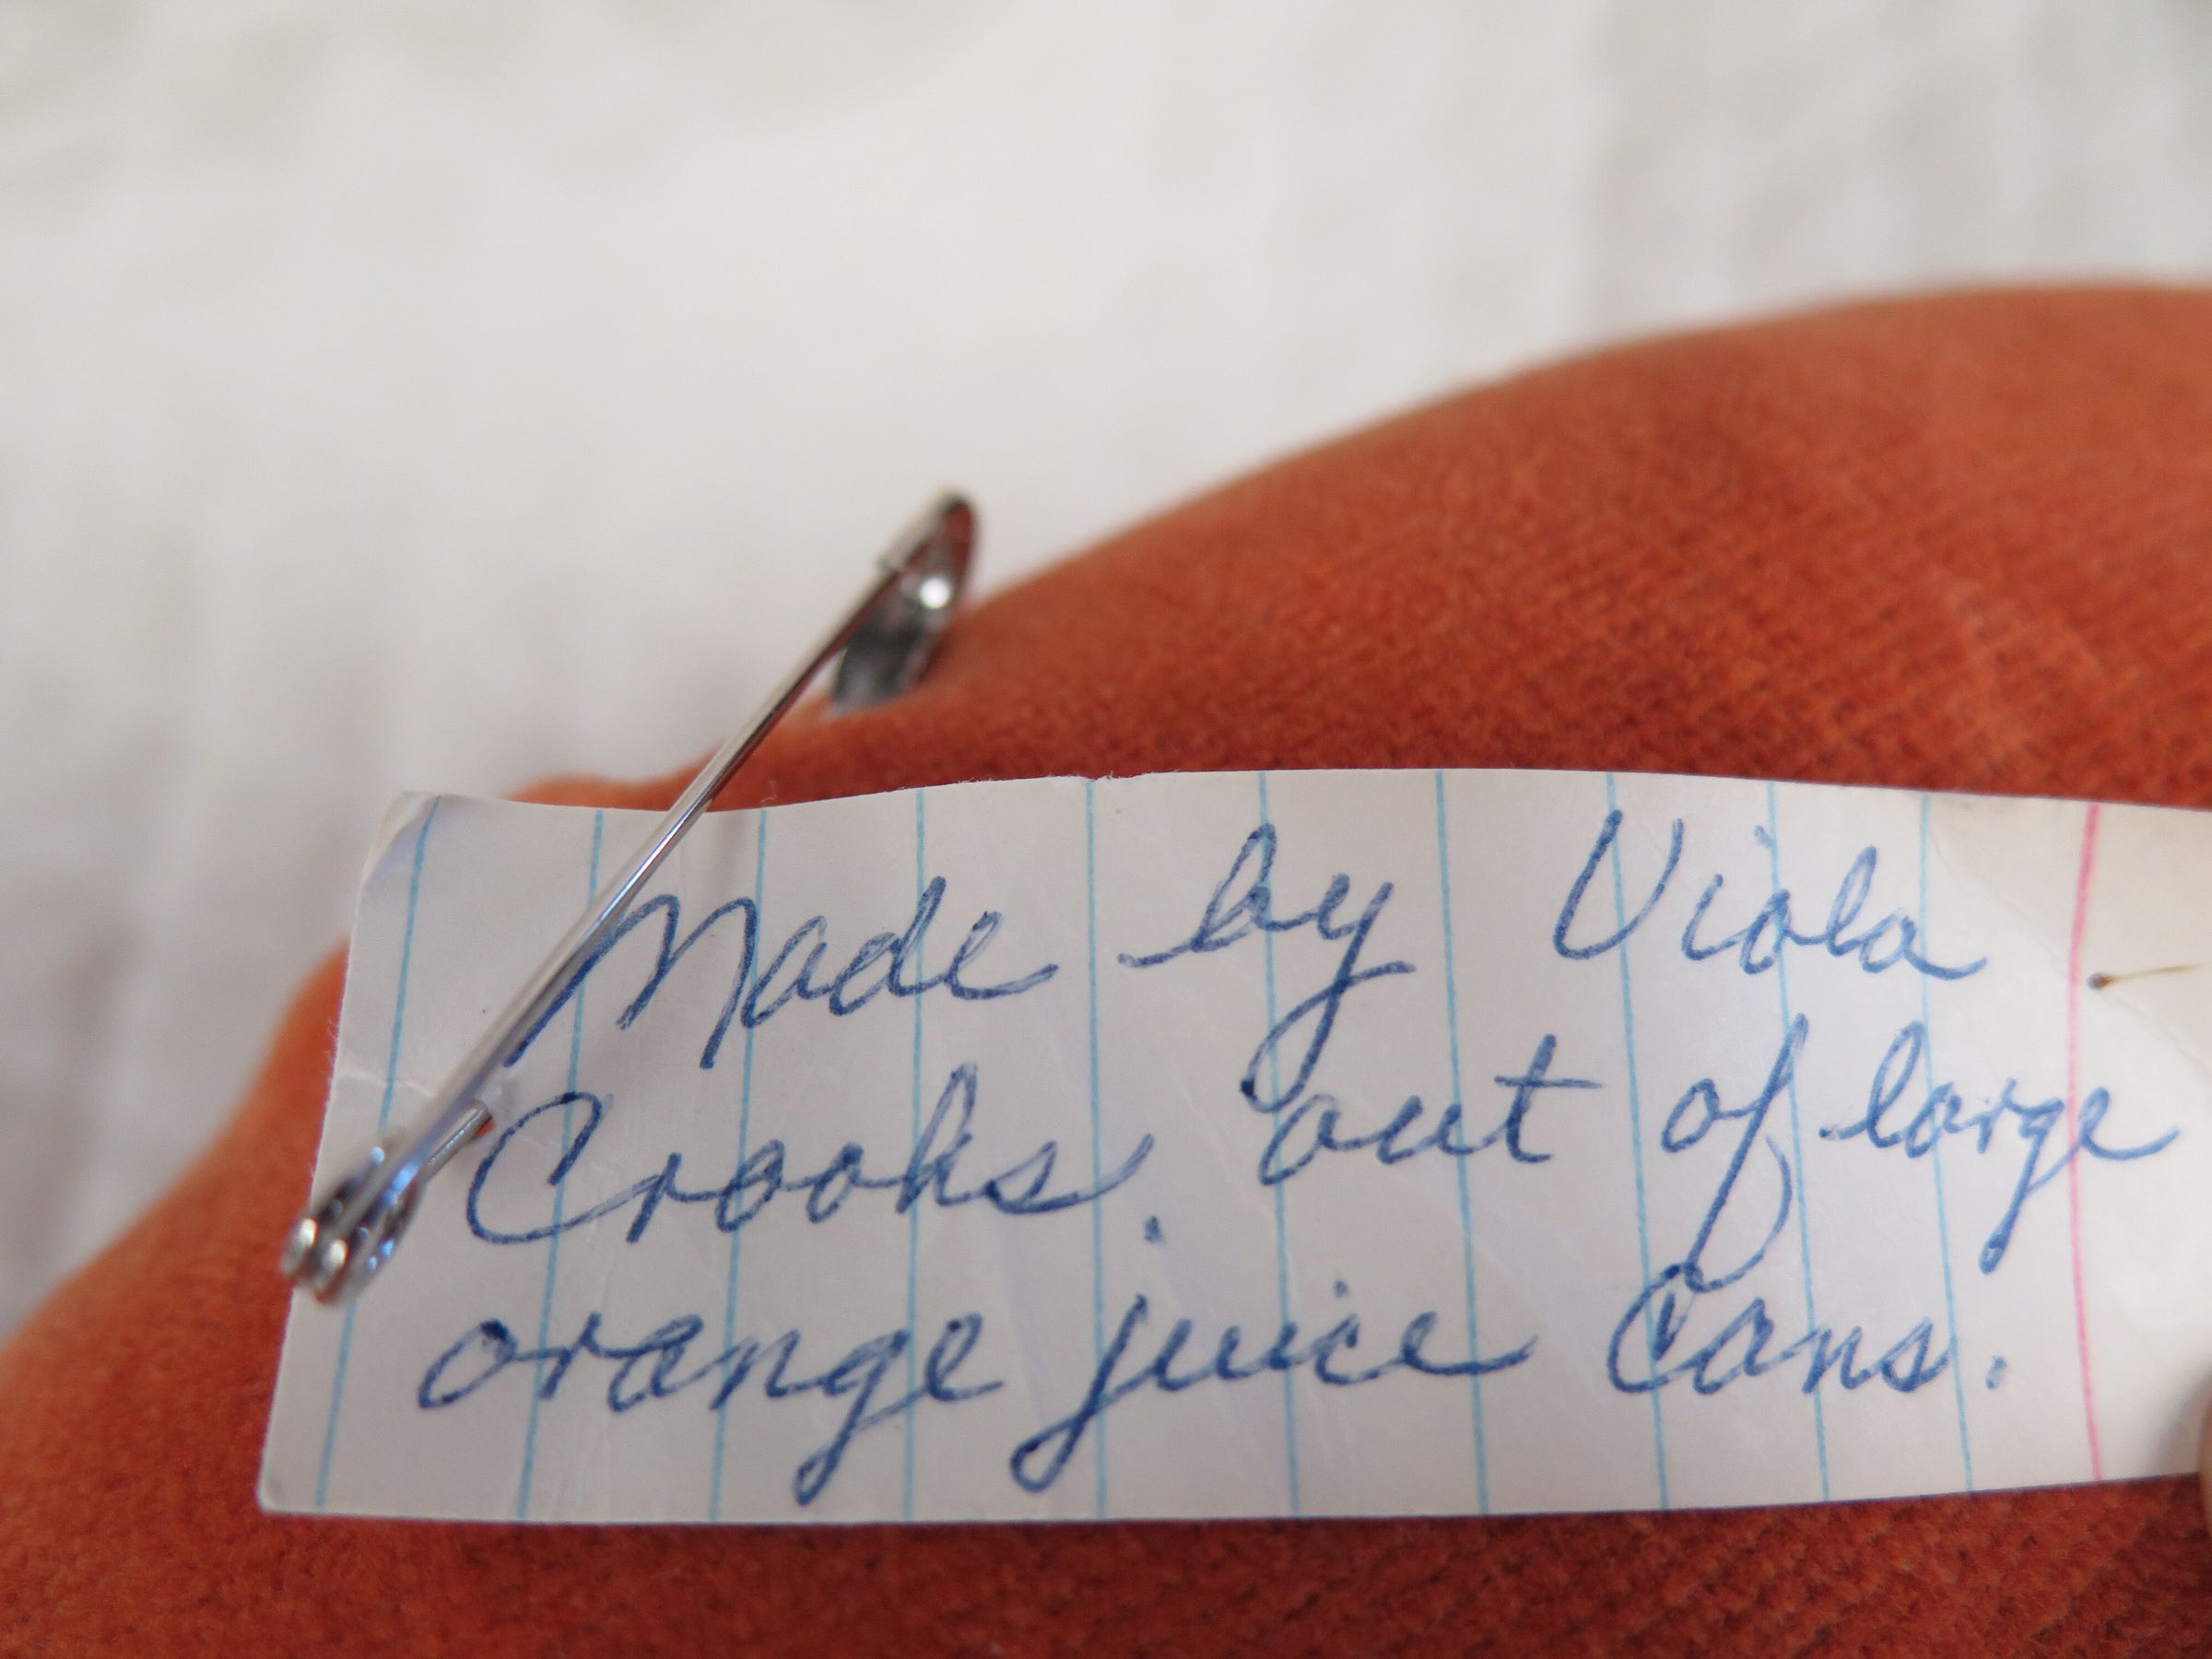 Made by Viola
Crooks. out of large
orange juice Cans.